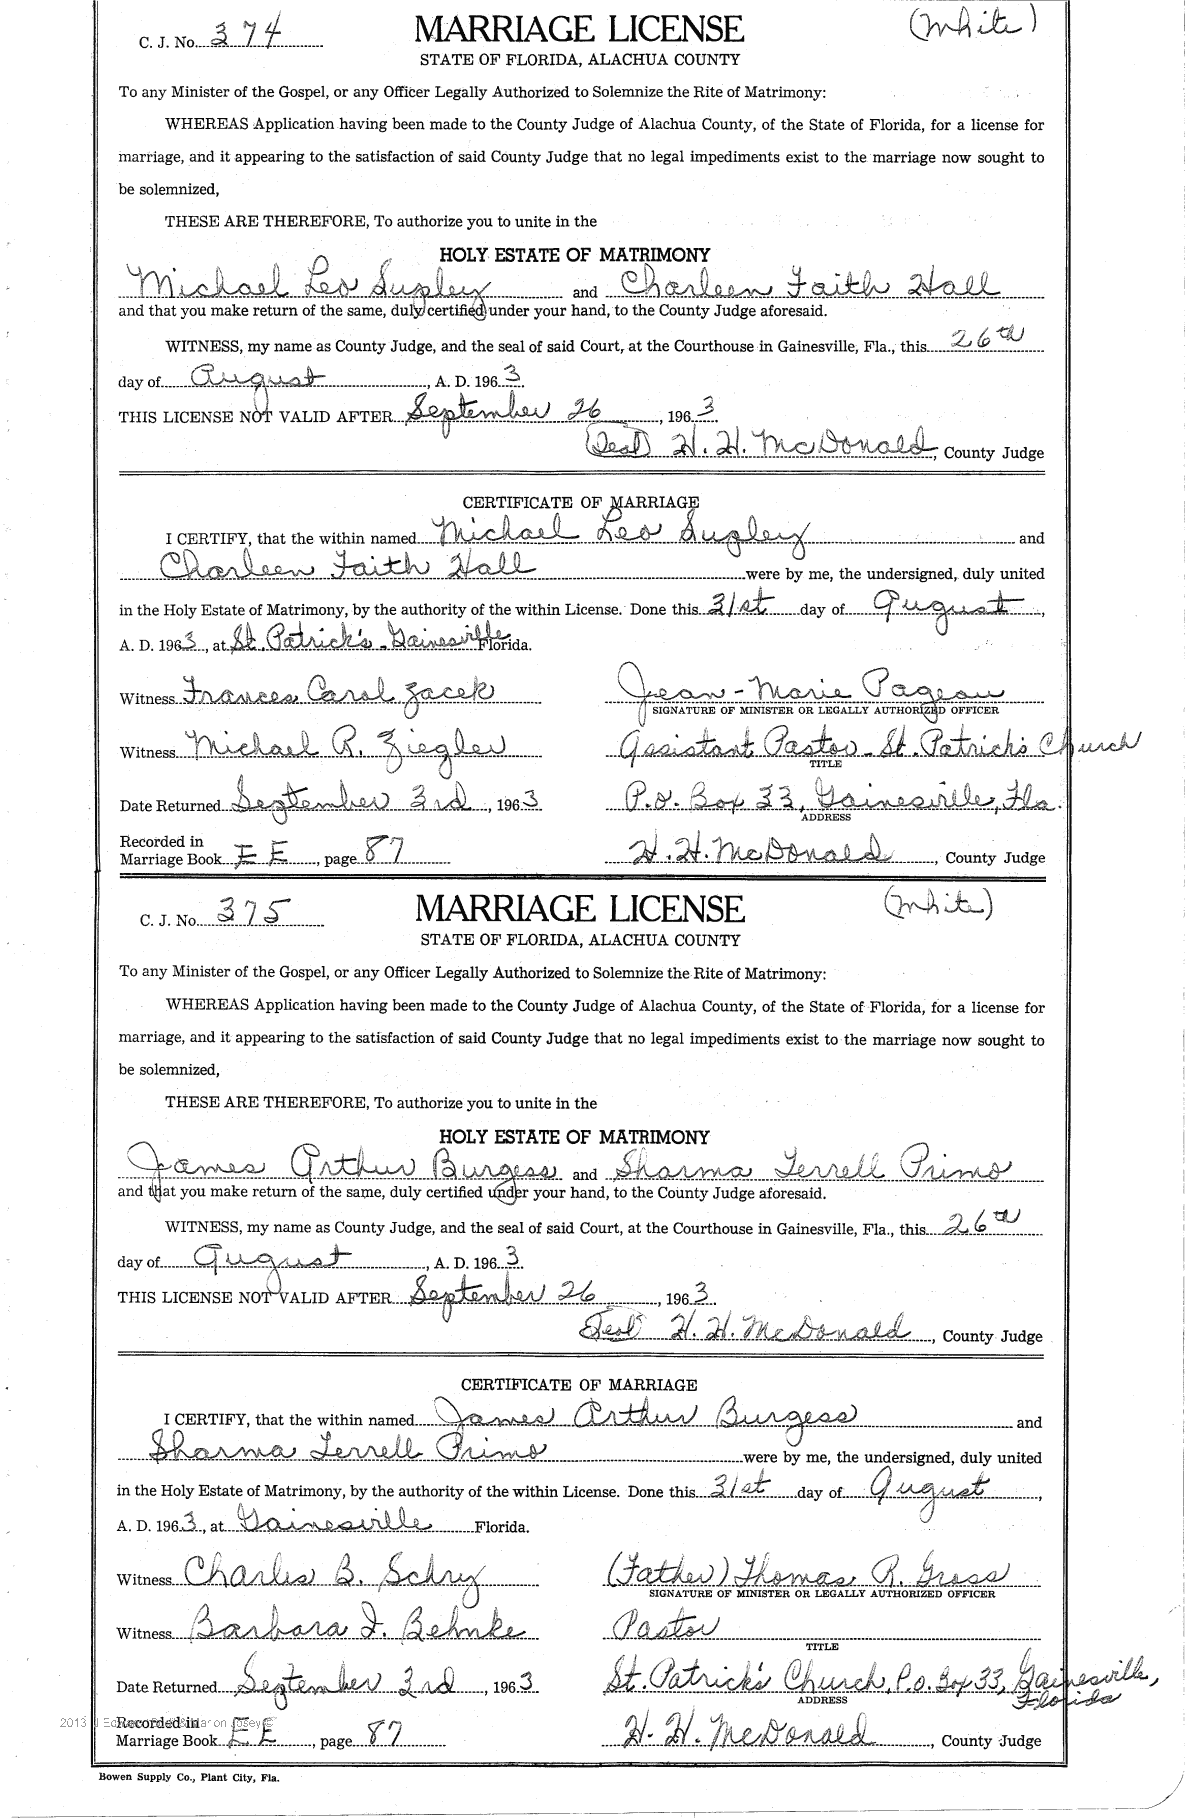 C. J. No. 374 MARRIAGE LICENSE (White)
STATE OF FLORIDA, ALACHUA COUNTY
To any Minister of the Gospel, or any Officer Legally Authorized to Solemnize the Rite of Matrimony:
WHEREAS Application having been made to the County Judge of Alachua County, of the State of Florida, for a license for
marriage, and it appearing to the satisfaction of said County Judge that no legal impediments exist to the marriage now sought to
be solemnized,
THESE ARE THEREFORE, To authorize you to unite in the
HOLY ESTATE OF MATRIMONY
Michael Leo Supley and Charleen Faith Hall
and that you make return of the same, duly certified under your hand, to the County Judge aforesaid.
WITNESS, my name as County Judge, and the seal of said Court, at the Courthouse in Gainesville, Fla., this 26th
day of August, A. D. 1963.
THIS LICENSE NOT VALID AFTER September 26, 1963.
(Seal) H. H. McDonald, County Judge
CERTIFICATE OF MARRIAGE
I CERTIFY, that the within named Michael Leo Supley and
Charleen Faith Hall were by me, the undersigned, duly united
in the Holy Estate of Matrimony, by the authority of the within License. Done this 31st day of August,
A. D. 1963, at St. Patrick's - Gainesville Florida.
Witness Frances Carol Zacek Jean-Marie Pageau
SIGNATURE OF MINISTER OR LEGALLY AUTHORIZED OFFICER
Witness Michael R. Ziegler Assistant Pastor - St. Patrick's Church
TITLE
Date Returned September 3rd, 1963 P.O. Box 33, Gainesville, Fla.
ADDRESS
Recorded in
Marriage Book EE, page 87 H. H. McDonald, County Judge
C. J. No. 375 MARRIAGE LICENSE (White)
STATE OF FLORIDA, ALACHUA COUNTY
To any Minister of the Gospel, or any Officer Legally Authorized to Solemnize the Rite of Matrimony:
WHEREAS Application having been made to the County Judge of Alachua County, of the State of Florida, for a license for
marriage, and it appearing to the satisfaction of said County Judge that no legal impediments exist to the marriage now sought to
be solemnized,
THESE ARE THEREFORE, To authorize you to unite in the
HOLY ESTATE OF MATRIMONY
James Arthur Burgess and Sharma Terrell Primo
and that you make return of the same, duly certified under your hand, to the County Judge aforesaid.
WITNESS, my name as County Judge, and the seal of said Court, at the Courthouse in Gainesville, Fla., this 26th
day of August, A. D. 1963.
THIS LICENSE NOT VALID AFTER September 26, 1963.
(Seal) H. H. McDonald, County Judge
CERTIFICATE OF MARRIAGE
I CERTIFY, that the within named James Arthur Burgess and
Sharma Terrell Primo were by me, the undersigned, duly united
in the Holy Estate of Matrimony, by the authority of the within License. Done this 31st day of August,
A. D. 1963, at Gainesville Florida.
Witness Charles B. Schry (Father) Thomas R. Gross
SIGNATURE OF MINISTER OR LEGALLY AUTHORIZED OFFICER
Witness Barbara J. Behnke Pastor
TITLE
Date Returned September 3rd, 1963 St. Patrick's Church, P.O. Box 33, Gainesville,
ADDRESS Florida
2013 Recorded in
Marriage Book EE, page 87 H. H. McDonald, County Judge
Bowen Supply Co., Plant City, Fla.